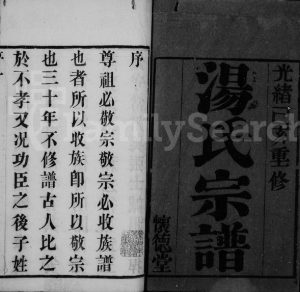 光緒丁亥重修
湯氏宗譜
懷德堂
序
尊祖必敬宗敬宗必收族譜
也者所以收族即所以敬宗
也三十年不修譜古人比之
於不孝又况功臣之後子姓
FamilySearch